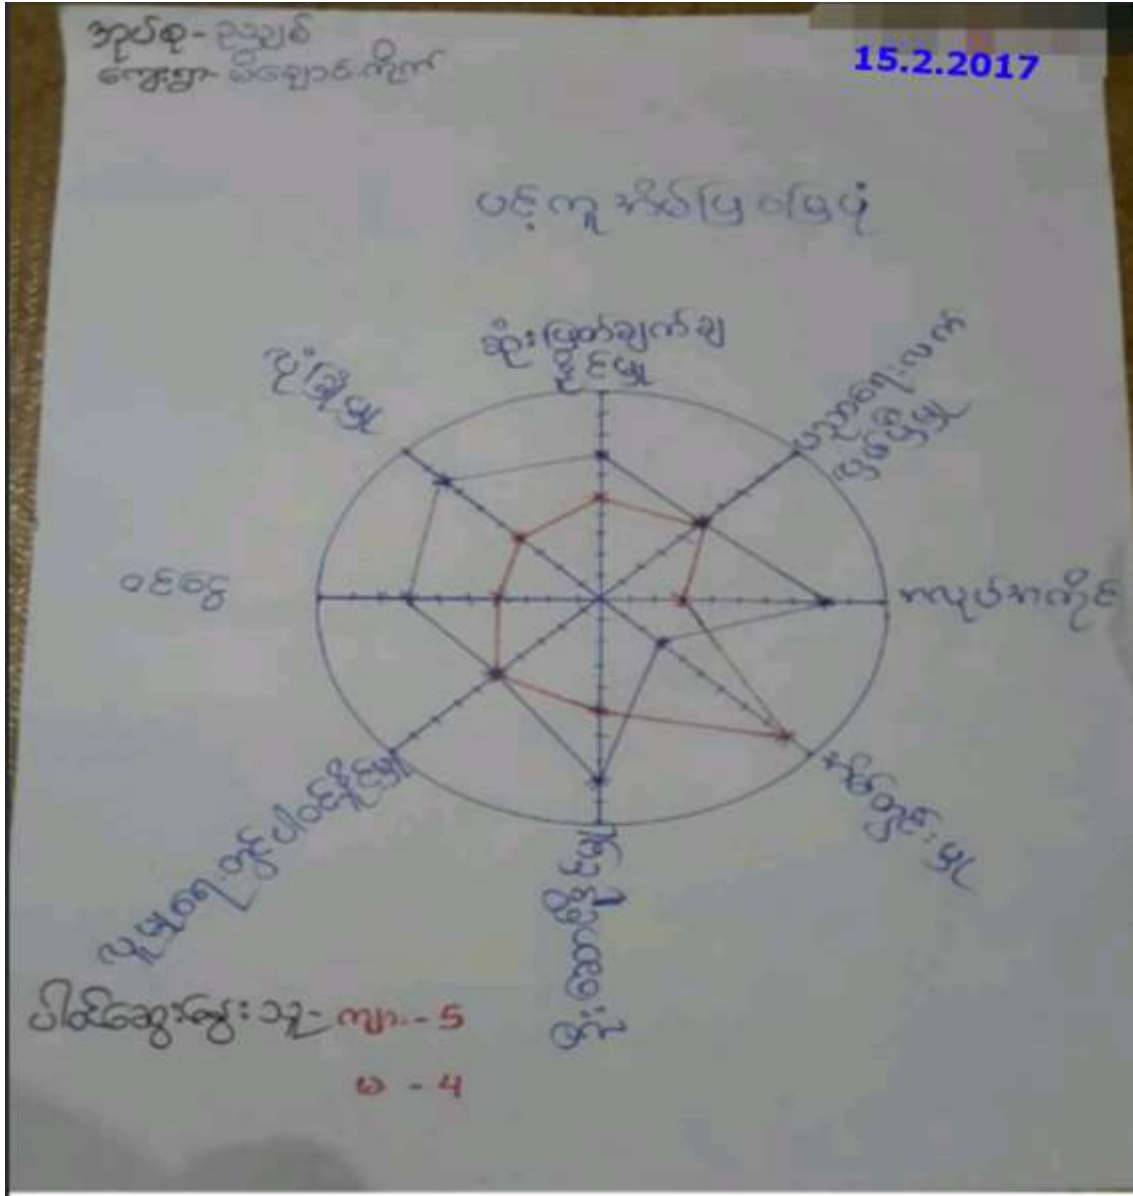 အုပ်စု - ညချစ်
ကျေးရွာ - မိချောင်းကိုက်
15.2.2017
ပင့်ကူအိမ်ပြမြေပုံ
ဆုံးဖြတ်ချက်ချ
နိုင်မှု
ပညာရေး၊ လက်
လှမ်းမှီမှု
အလုပ်အကိုင်
အိမ်တွင်းမှု
လူမှုရေးတွင်ပါဝင်နိုင်မှု
ဝင်ငွေ
ပုံခြုံမှု
ပါဝင်ဆွေးနွေးသူ - ကျား - 5
မ - 4